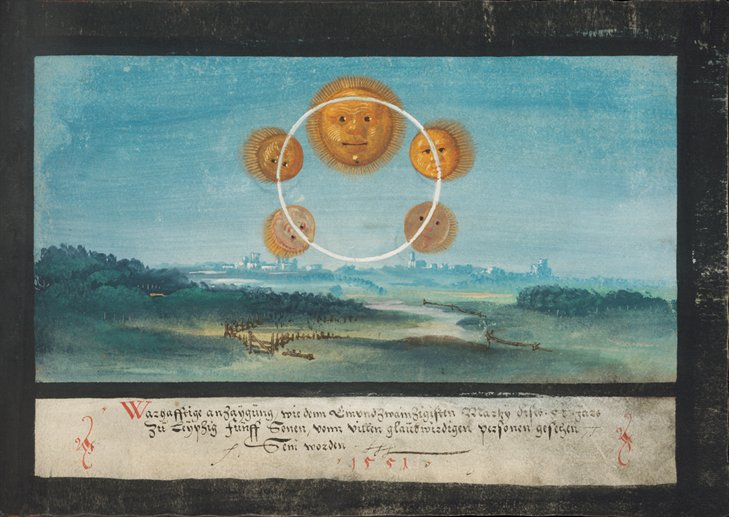 Warhafftige anzaygung, wie dem Ainundzwaintzigisten Martzy dises · 51 · Jars
zu Leyptzig fünff Sonen vonn villen glaubwirdigen personen gesehen
Seni worden
1551